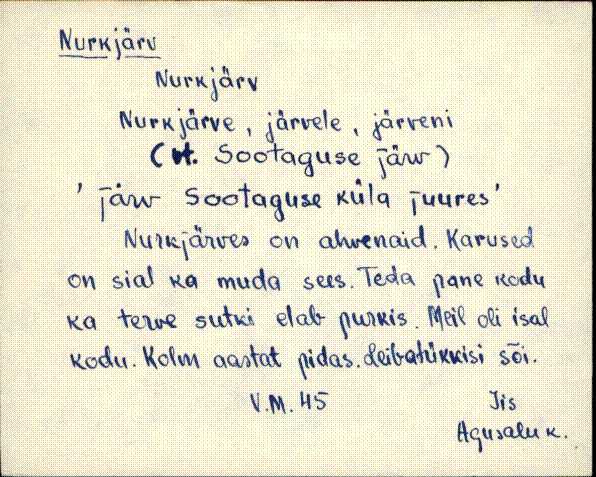 Nurkjärv
Nurkjärv
Nurkjärve, järvele, järveni
(vt. Sootaguse järv)
'järv Sootaguse küla juures'
Nurkjärves on ahvenaid. Karused
on sial ka muda sees. Teda pane kodu
ka terve sutki elab purkis. Meil oli isal
kodu. Kolm aastat pidas. Leibatükkisi sõi.
V.M. 45 Iis
Agusalu k.